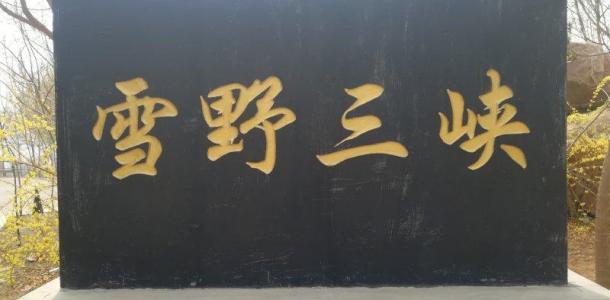 雪野三峡